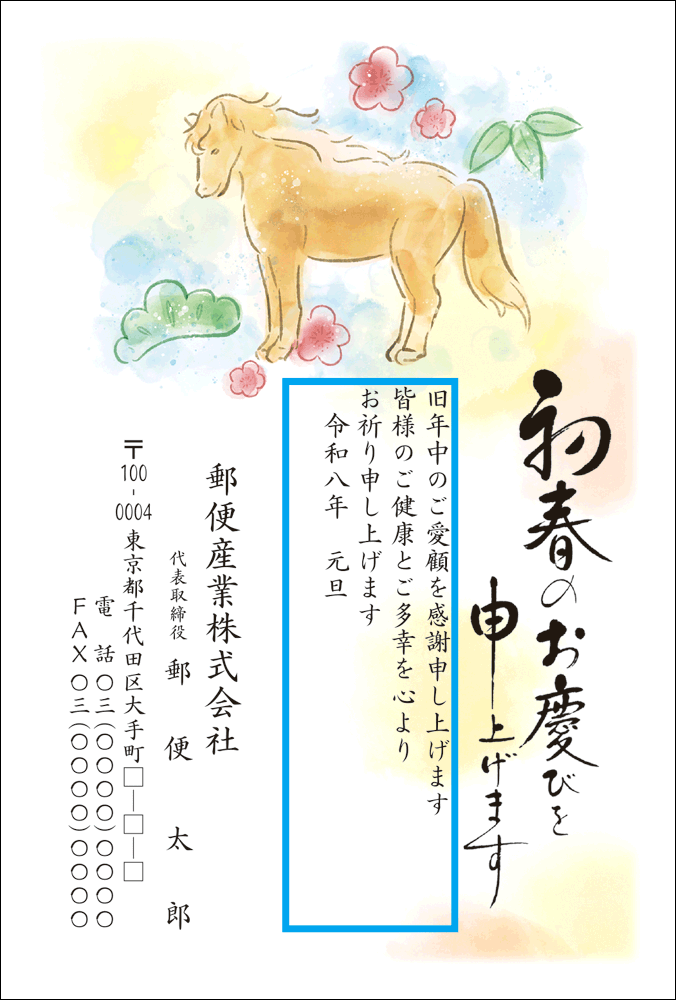 初春のお慶びを
申し上げます
旧年中のご愛顧を感謝申し上げます
皆様のご健康とご多幸を心より
お祈り申し上げます
令和八年　元旦
郵便産業株式会社
代表取締役　郵便太郎
〒100-0004　東京都千代田区大手町□―□―□
電話〇三(〇〇〇〇)〇〇〇〇
FAX〇三(〇〇〇〇)〇〇〇〇